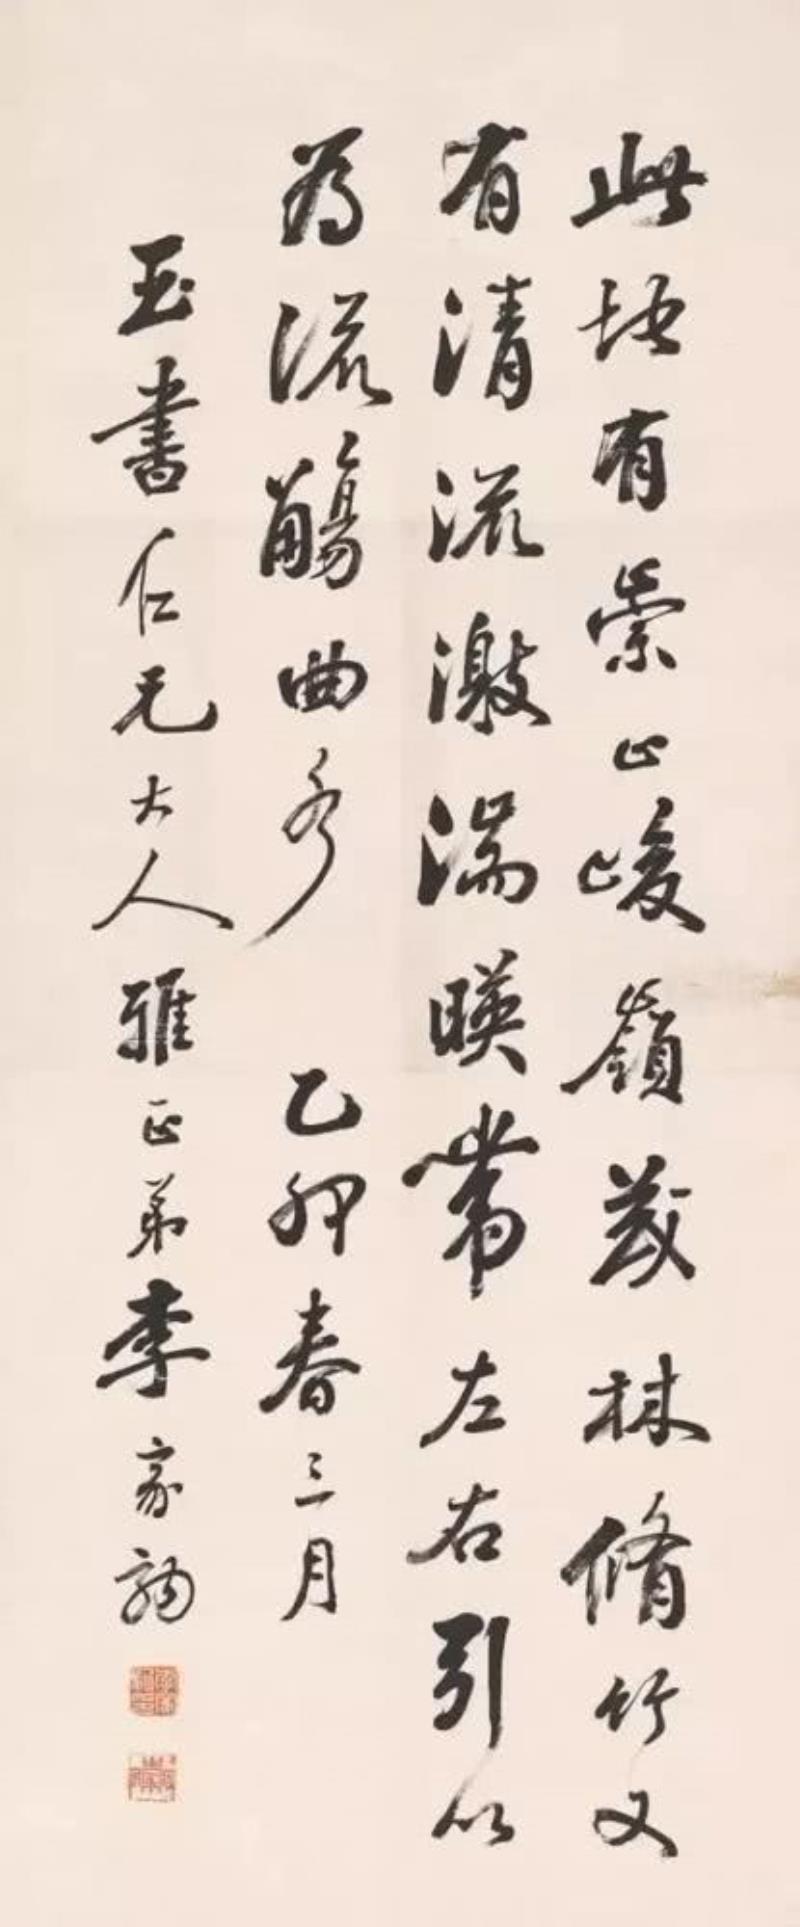 此地有崇山峻嶺茂林脩竹又
有清流激湍暎帶左右引以
為流觴曲水 乙卯春三月
玉書仁兄大人雅正弟李家驹